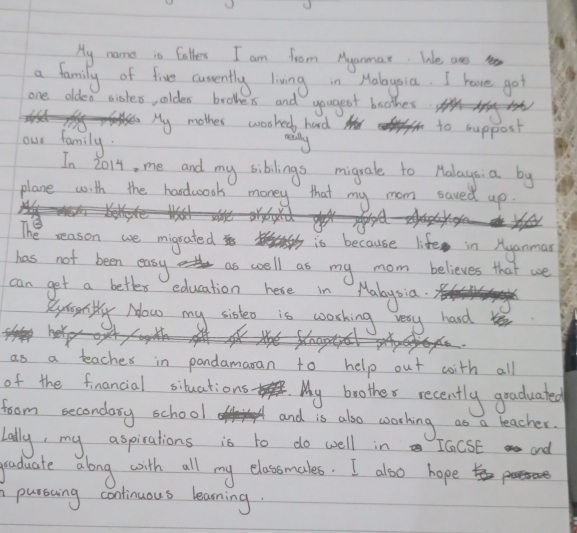 My name is Esther I am from Myanmar. We are
a family of five currently living in Malaysia. I have got
one older sister, older brother and youngest brother
My mother worked really hard to support
our family.
In 2014, me and my siblings migrate to Malaysia by
plane with the hardwork money that my mom saved up.
The reason we migrated is because life in Myanmar
has not been easy as well as my mom believes that we
can get a better education here in Malaysia.
Now my sister is working very hard
as a teacher in pandamaran to help out with all
of the financial situations. My brother recently graduated
from secondary school and is also working as a teacher.
Lally, my aspirations is to do well in IGCSE and
graduate along with all my classmates. I also hope
pursuing continuous learning.